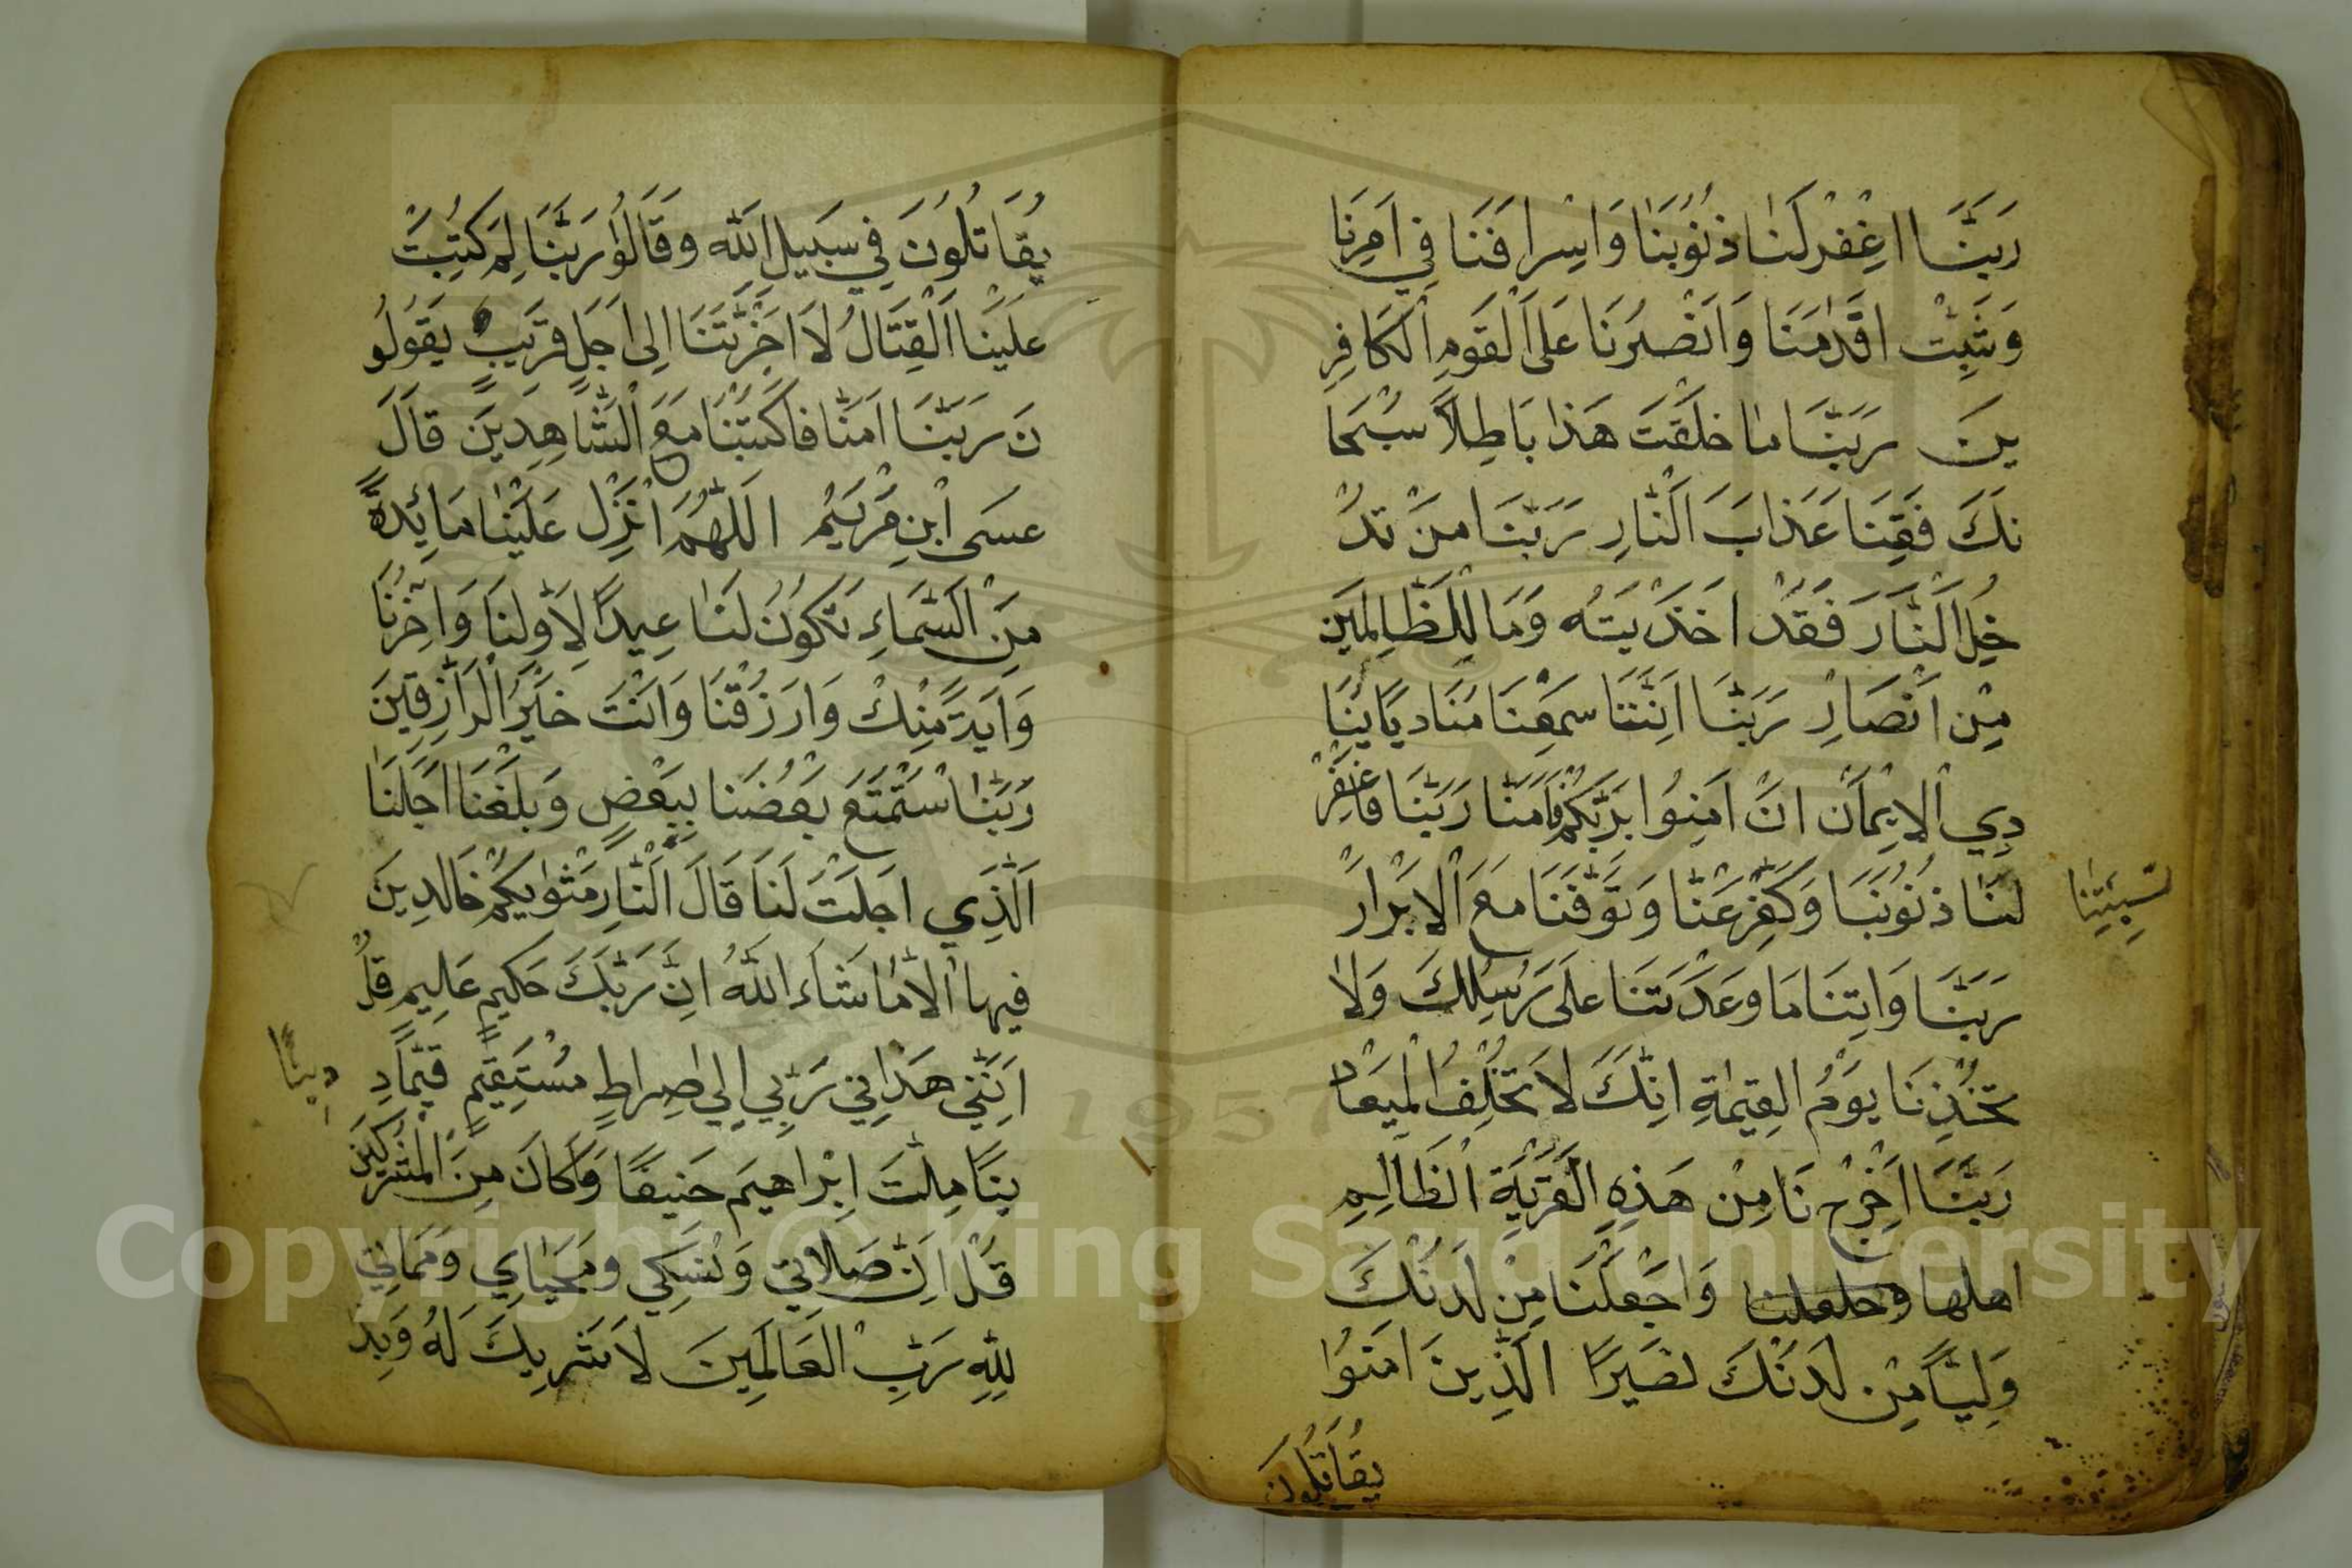 رَبَّنَا اغْفِرْلَنَا ذُنُوبَنَا وَاِسْرَافَنَا فِي اَمْرِنَا
وَثَبِّتْ اَقْدَامَنَا وَانْصُرْنَا عَلَى الْقَوْمِ الْكَافِرِ
ينَ رَبَّنَا مَا خَلَقْتَ هَذَا بَاطِلًا سُبْحَا
نَكَ فَقِنَا عَذَابَ النَّارِ رَبَّنَا مَنْ تُدْ
خِلِ النَّارَ فَقَدْ اَخْذَيْتَهُ وَمَا لِلظَّالِمِينَ
مِنْ اَنْصَارٍ رَبَّنَا اِنَّنَا سَمِعْنَا مُنَادِيًا يُنَا
دِي الْاِيْمَانِ اَنْ اٰمِنُوا بِرَبِّكُمْ فَاٰمَنَّا رَبَّنَا فَاغْفِرْ
لَنَا ذُنُوبَنَا وَكَفِّرْ عَنَّا وَتَوَفَّنَا مَعَ الْاَبْرَارْ
سَيِّئَاتِنَا
رَبَّنَا وَاٰتِنَا مَا وَعَدْتَنَا عَلَى رُسُلِكَ وَلَا
تُخْذِنَا يَوْمَ الْقِيٰمَةِ اِنَّكَ لَا تُخْلِفُ الْمِيعَادْ
رَبَّنَا اَخْرِجْ نَا مِنْ هَذِهِ الْقَرْيَةِ الظَّالِمِ
اهلها وَاجْعَلْنَا مِنْ لَدُنْكَ
وَلِيًّا مِنْ لَدُنْكَ نَصِيرًا الَّذِينَ اٰمَنُوا
يُقَاتِلُونَ
يُقَاتِلُونَ فِي سَبِيلِ اللّٰهِ وَقَالُوا رَبَّنَا لِمَ كَتَبْتَ
عَلَيْنَا الْقِتَالُ لَا اَخَّرْتَنَا اِلَى اَجَلٍ قَرِيبٍ يَقُولُو
نَ رَبَّنَا اٰمَنَّا فَاكْتُبْنَا مَعَ الْشَّاهِدِينَ قَالَ
عِسَى ابْنِ مَرْيَمْ اَللّٰهُمَّ اَنْزِلْ عَلَيْنَا مَائِدَةً
مِنَ السَّمَاءِ تَكُونُ لَنَا عِيدًا لِاَوَّلِنَا وَاٰخِرِنَا
وَاٰيَةً مِنْكَ وَارْزُقْنَا وَاَنْتَ خَيْرُ الرَّازِقِينَ
رَبَّنَا اسْتَمْتَعَ بَعْضُنَا بِبَعْضٍ وَبَلَغْنَا اَجَلَنَا
الَّذِي اَجَّلْتَ لَنَا قَالَ النَّارِ مَثْوٰيكُمْ خَالِدِينَ
فِيهَا اِلَّا مَا شَاءَ اللّٰهُ اِنَّ رَبَّكَ حَكِيمٌ عَلِيمٌ قُلْ
اِنَّنِي هَدٰانِي رَبِّي اِلِي صِرَاطٍ مُسْتَقِيمٍ قَيِّمًا دِ
دِينًا
ينًا مِلَّتَ اِبْرَاهِيمَ حَنِيفًا وَمَا كَانَ مِنَ الْمُشْرِكِينَ
قُلْ اِنَّ صَلَاتِي وَنُسُكِي وَمَحْيَايِي وَمَمَاتِي
لِلّٰهِ رَبِّ الْعَالَمِينَ لَا شَرِيكَ لَهُ وَبِذَ
1957
Copyright © King Saud University